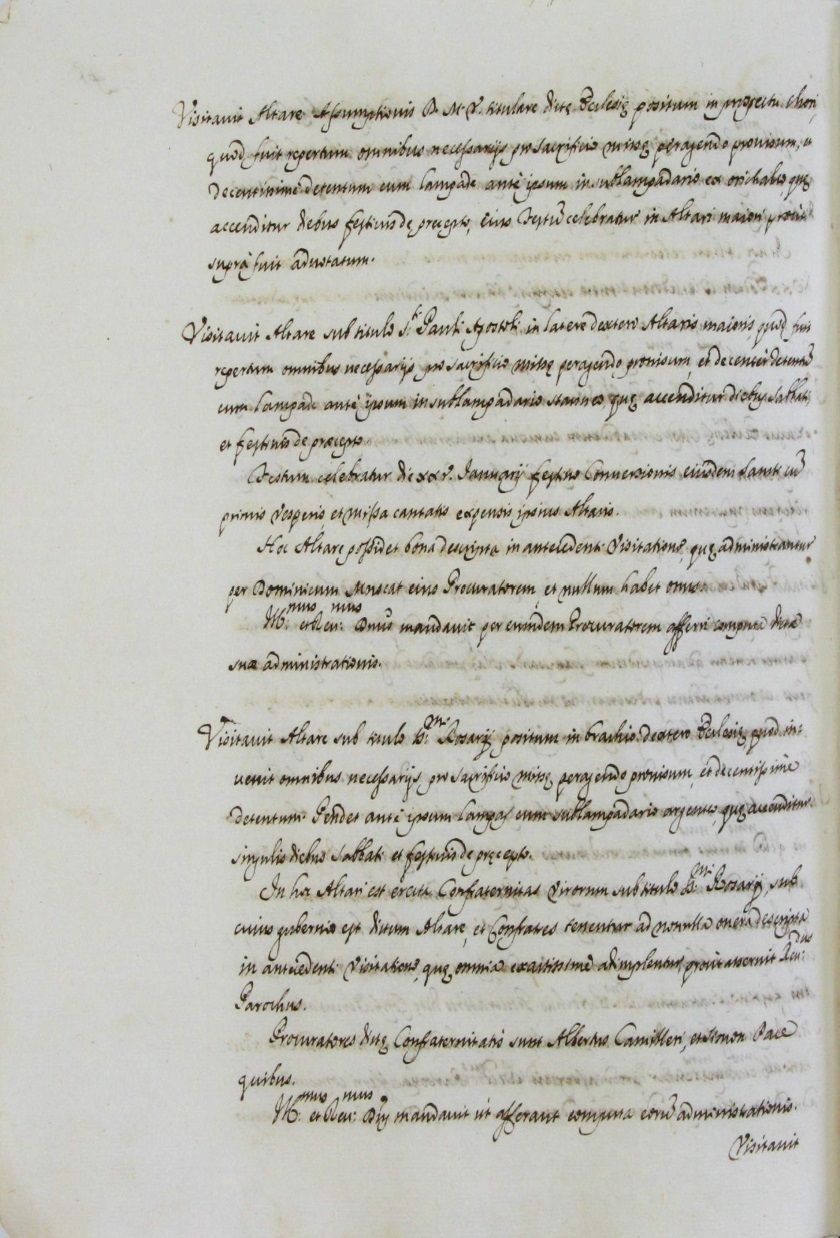 Visitavit Altare Assumptionis B. M. V. titulare dictę Ecclesię positum in prospectu chori,
quod fuit repertum omnibus necessarijs pro sacrificio missę peragendo provisum, et
decentissimè detentum cum lampade antè ipsum in sublampadario ex orichalco, quę
accenditur diebus festivis de precepto, Eius Festũ celebratur in Altari maiori prout
suprà fuit adnotatum.
Visitavit Altare sub titulo S.ti Pauli Apostoli in latere dextero Altaris maioris quod fuit
repertum omnibus necessarijs pro sacrificio missę peragendo provisum, et decenter detentũ
cum lampade antè ipsum in sublampadario stanneo quę accenditur diebus Sabbati,
et festivis de præcepto
Festum celebratur die xxv. Januarij festivo Conversionis eiusdem Sancti cũ
primis Vesperis, et missa cantatis expensis ipsius Altaris.
Hoc Altare possidet bona descripta in antecedenti Visitatione, quę administrantur
per Dominicum Muscat eius Procuratorem, et nullum habet onus.
Ill.mus et Rev.mus Dnũs mandavit per eundem Procuratorem afferri computa dictæ
suæ administrationis.
Visitavit Altare sub titulo S.mi Rosarij, positum in brachio dextero Ecclesię, quod in=
venit omnibus necessarijs pro sacrificio missę peragendo provisum, et decentissimè
detentum. Pendet antè ipsum lampas cum sublampadario argenteo, quę accenditur
singulis diebus Sabbati et festivis de pręcepto.
In hoc Altari est erecta Confraternitas Virorum sub titulo S.mi Rosarij, sub
cuius gubernio est dictum Altare, et Confratres tenentur ad nonnulla onera descripta
in antecedenti Visitatione, quę omnia exactissimè adimplentur, prout asseruit Rev.dus
Parochus.
Procuratores dictę Confraternitatis sunt Albertus Camilleri, et Simon Pace
quibus.
Ill.mus et Rev.mus Dnus mandavit ut afferant computa eorũ administrationis.
Visitavit